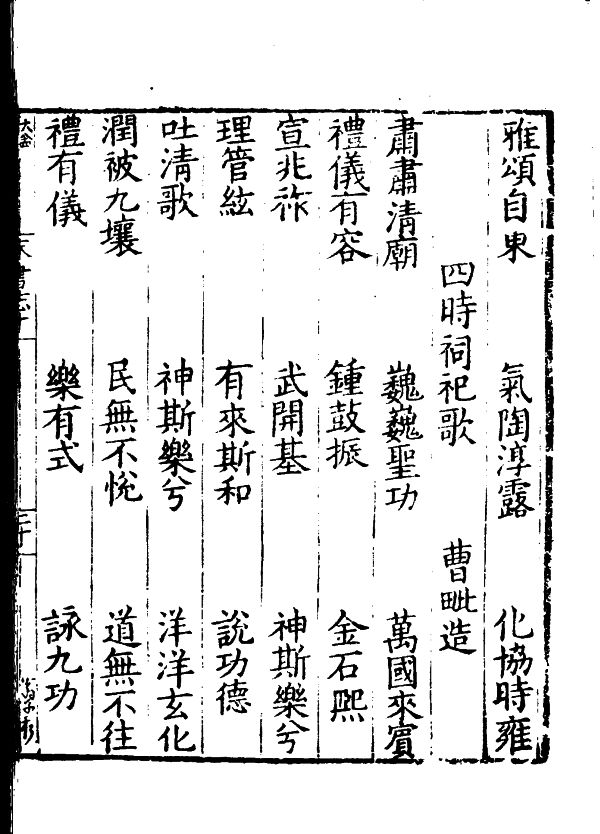 雅頌自東　氣陶淳露　化協時雍
四時祠祀歌　曹毗造
肅肅清廟　巍巍聖功　萬國來賓
禮儀有容　鍾鼓振　金石熙
宣兆祚　武開基　神斯樂兮
理管絃　有來斯和　說功德
吐清歌　神斯樂兮　洋洋玄化
潤被九壤　民無不悅　道無不往
禮有儀　樂有式　詠九功
書志十